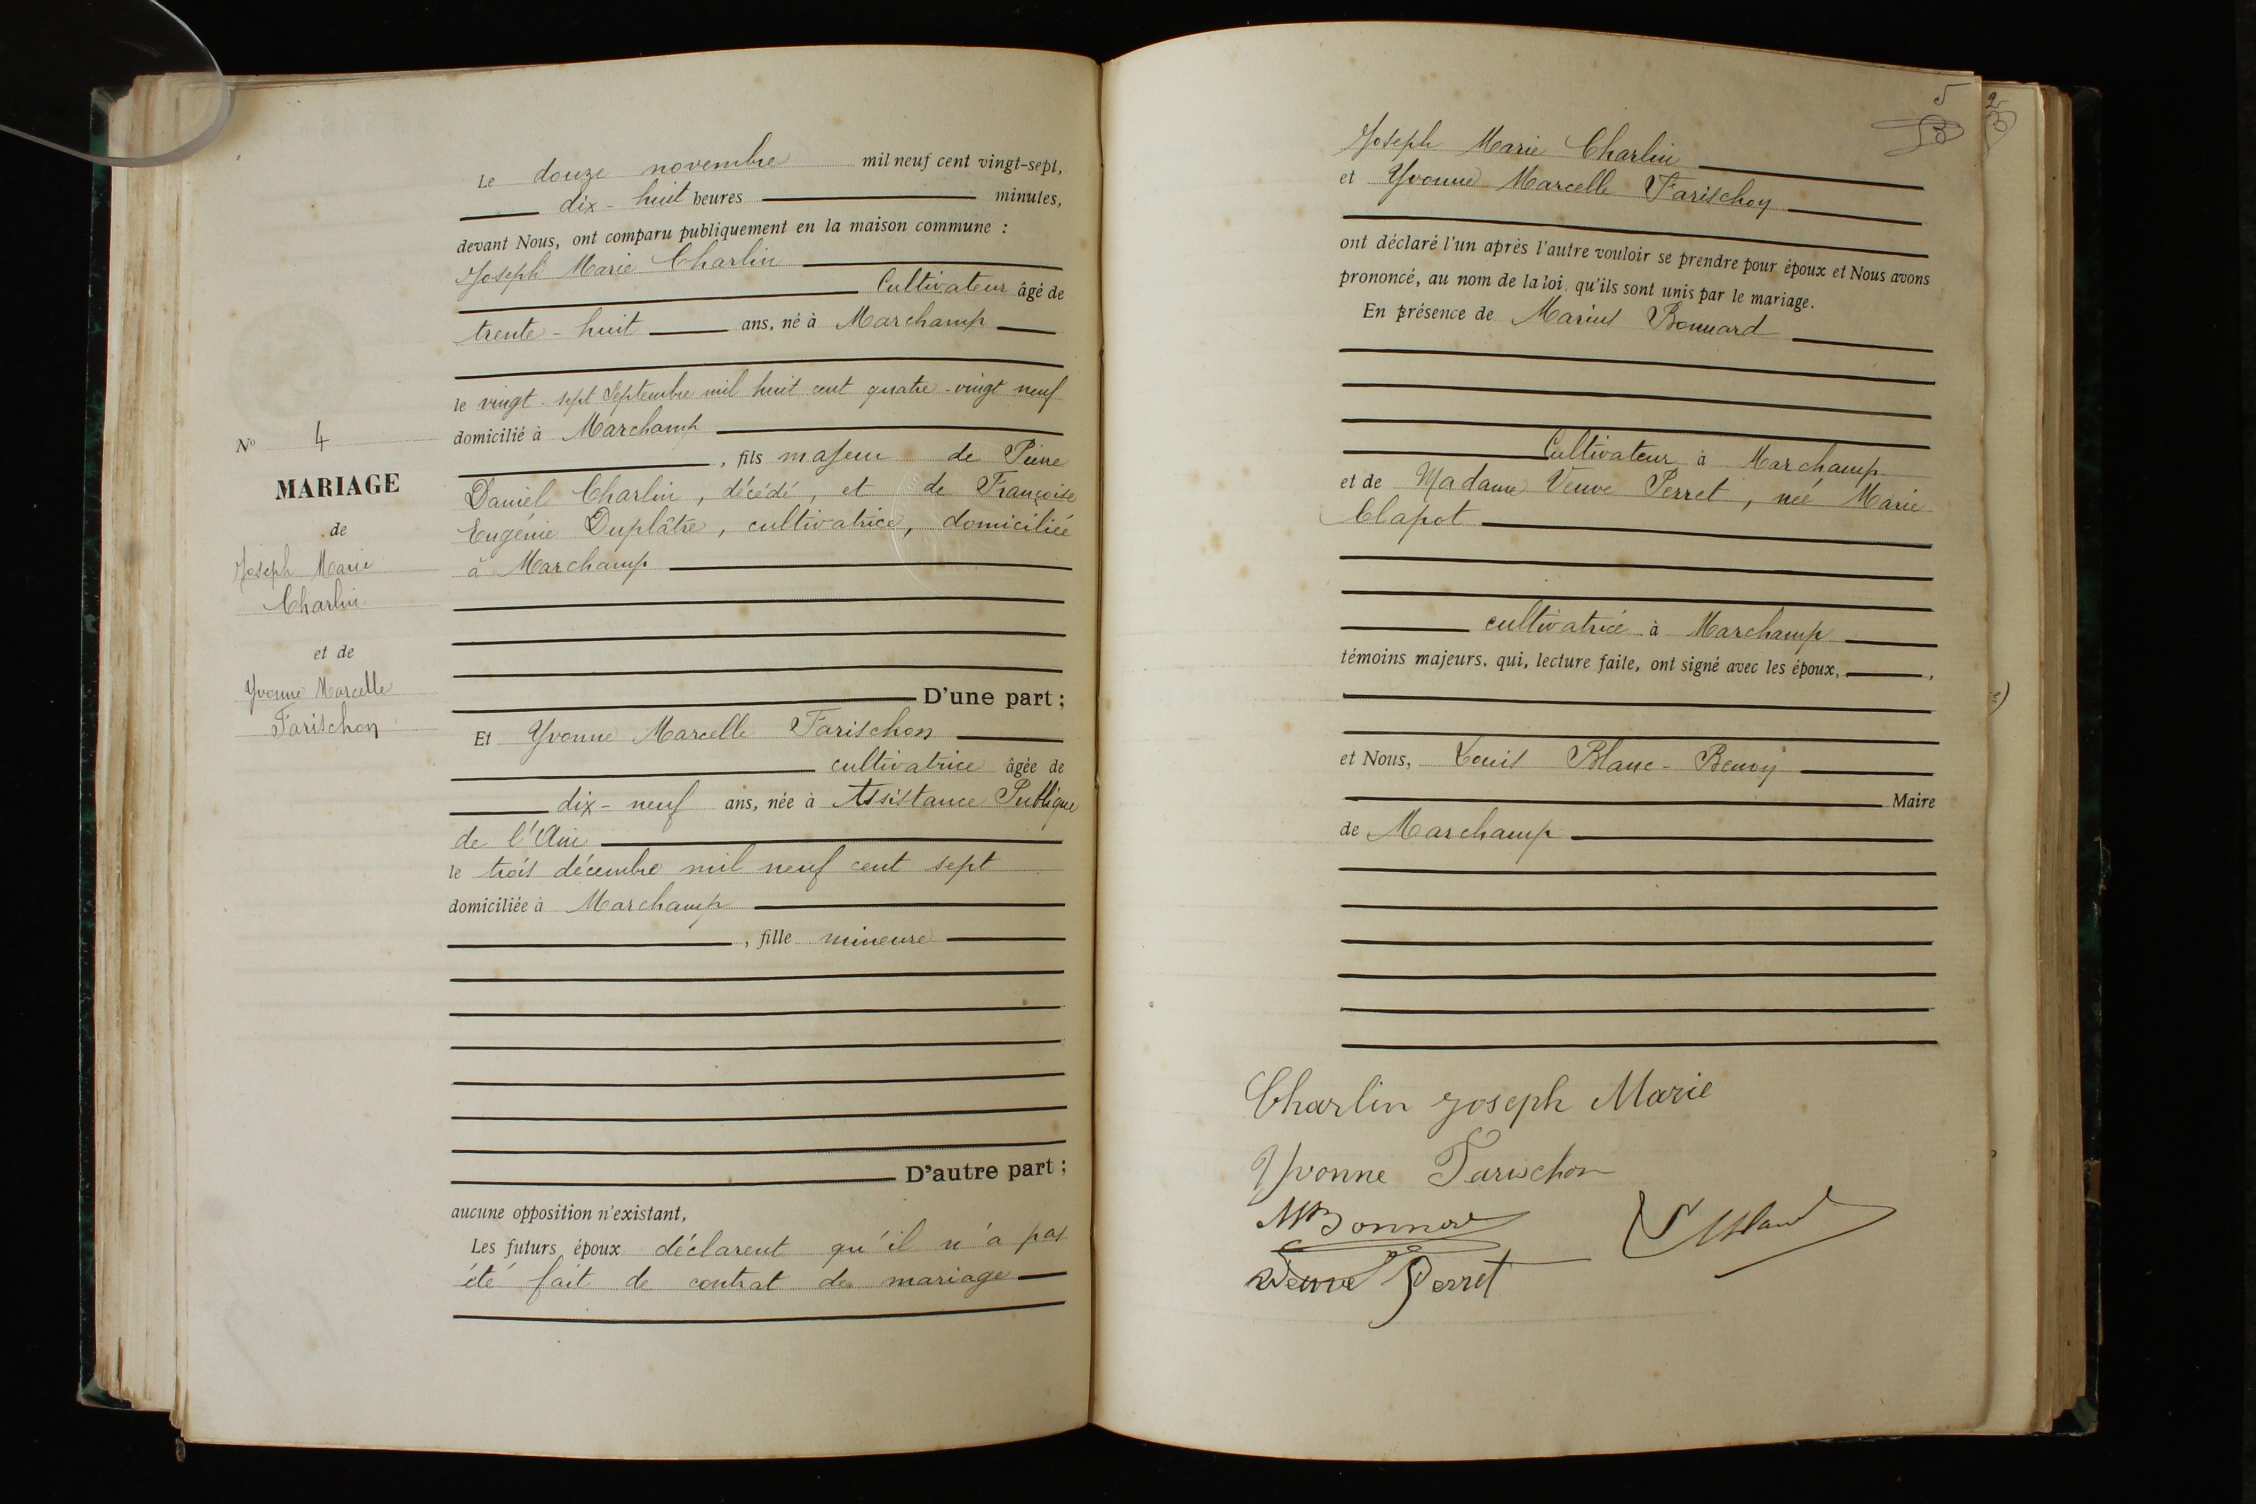 Le douze novembre mil neuf cent vingt-sept,
dix-huit heures minutes,
devant Nous, ont comparu publiquement en la maison commune :
Joseph Marie Charlin
Cultivateur âgé de
trente-huit ans, né à Marchamp
le vingt-sept Septembre mil huit cent quatre-vingt neuf
domicilié à Marchamp
, fils majeur de Pierre
Daniel Charlin, décédé, et de Françoise
Eugénie Duplâtre, cultivatrice, domiciliée
à Marchamp
D'une part ;
Nº 4
MARIAGE
de
Joseph Marie
Charlin
et de
Yvonne Marcelle
Farischon
Et Yvonne Marcelle Farischon
cultivatrice âgée de
dix-neuf ans, née à Assistance Publique
de l'Ain
le trois décembre mil neuf cent sept
domiciliée à Marchamp
, fille mineure
D'autre part ;
aucune opposition n'existant,
Les futurs époux déclarent qu'il n'a pas
été fait de contrat de mariage
5
Joseph Marie Charlin
et Yvonne Marcelle Farischon
ont déclaré l'un après l'autre vouloir se prendre pour époux et Nous avons
prononcé, au nom de la loi, qu'ils sont unis par le mariage.
En présence de Marius Bonnard
Cultivateur à Marchamp
et de Madame Veuve Perret, née Marie
Clapot
cultivatrice à Marchamp
témoins majeurs, qui, lecture faite, ont signé avec les époux,
et Nous, Louis Blanc-Benoy
Maire
de Marchamp
Charlin Joseph Marie
Yvonne Farischon
M Bonnard
Veuve Perret